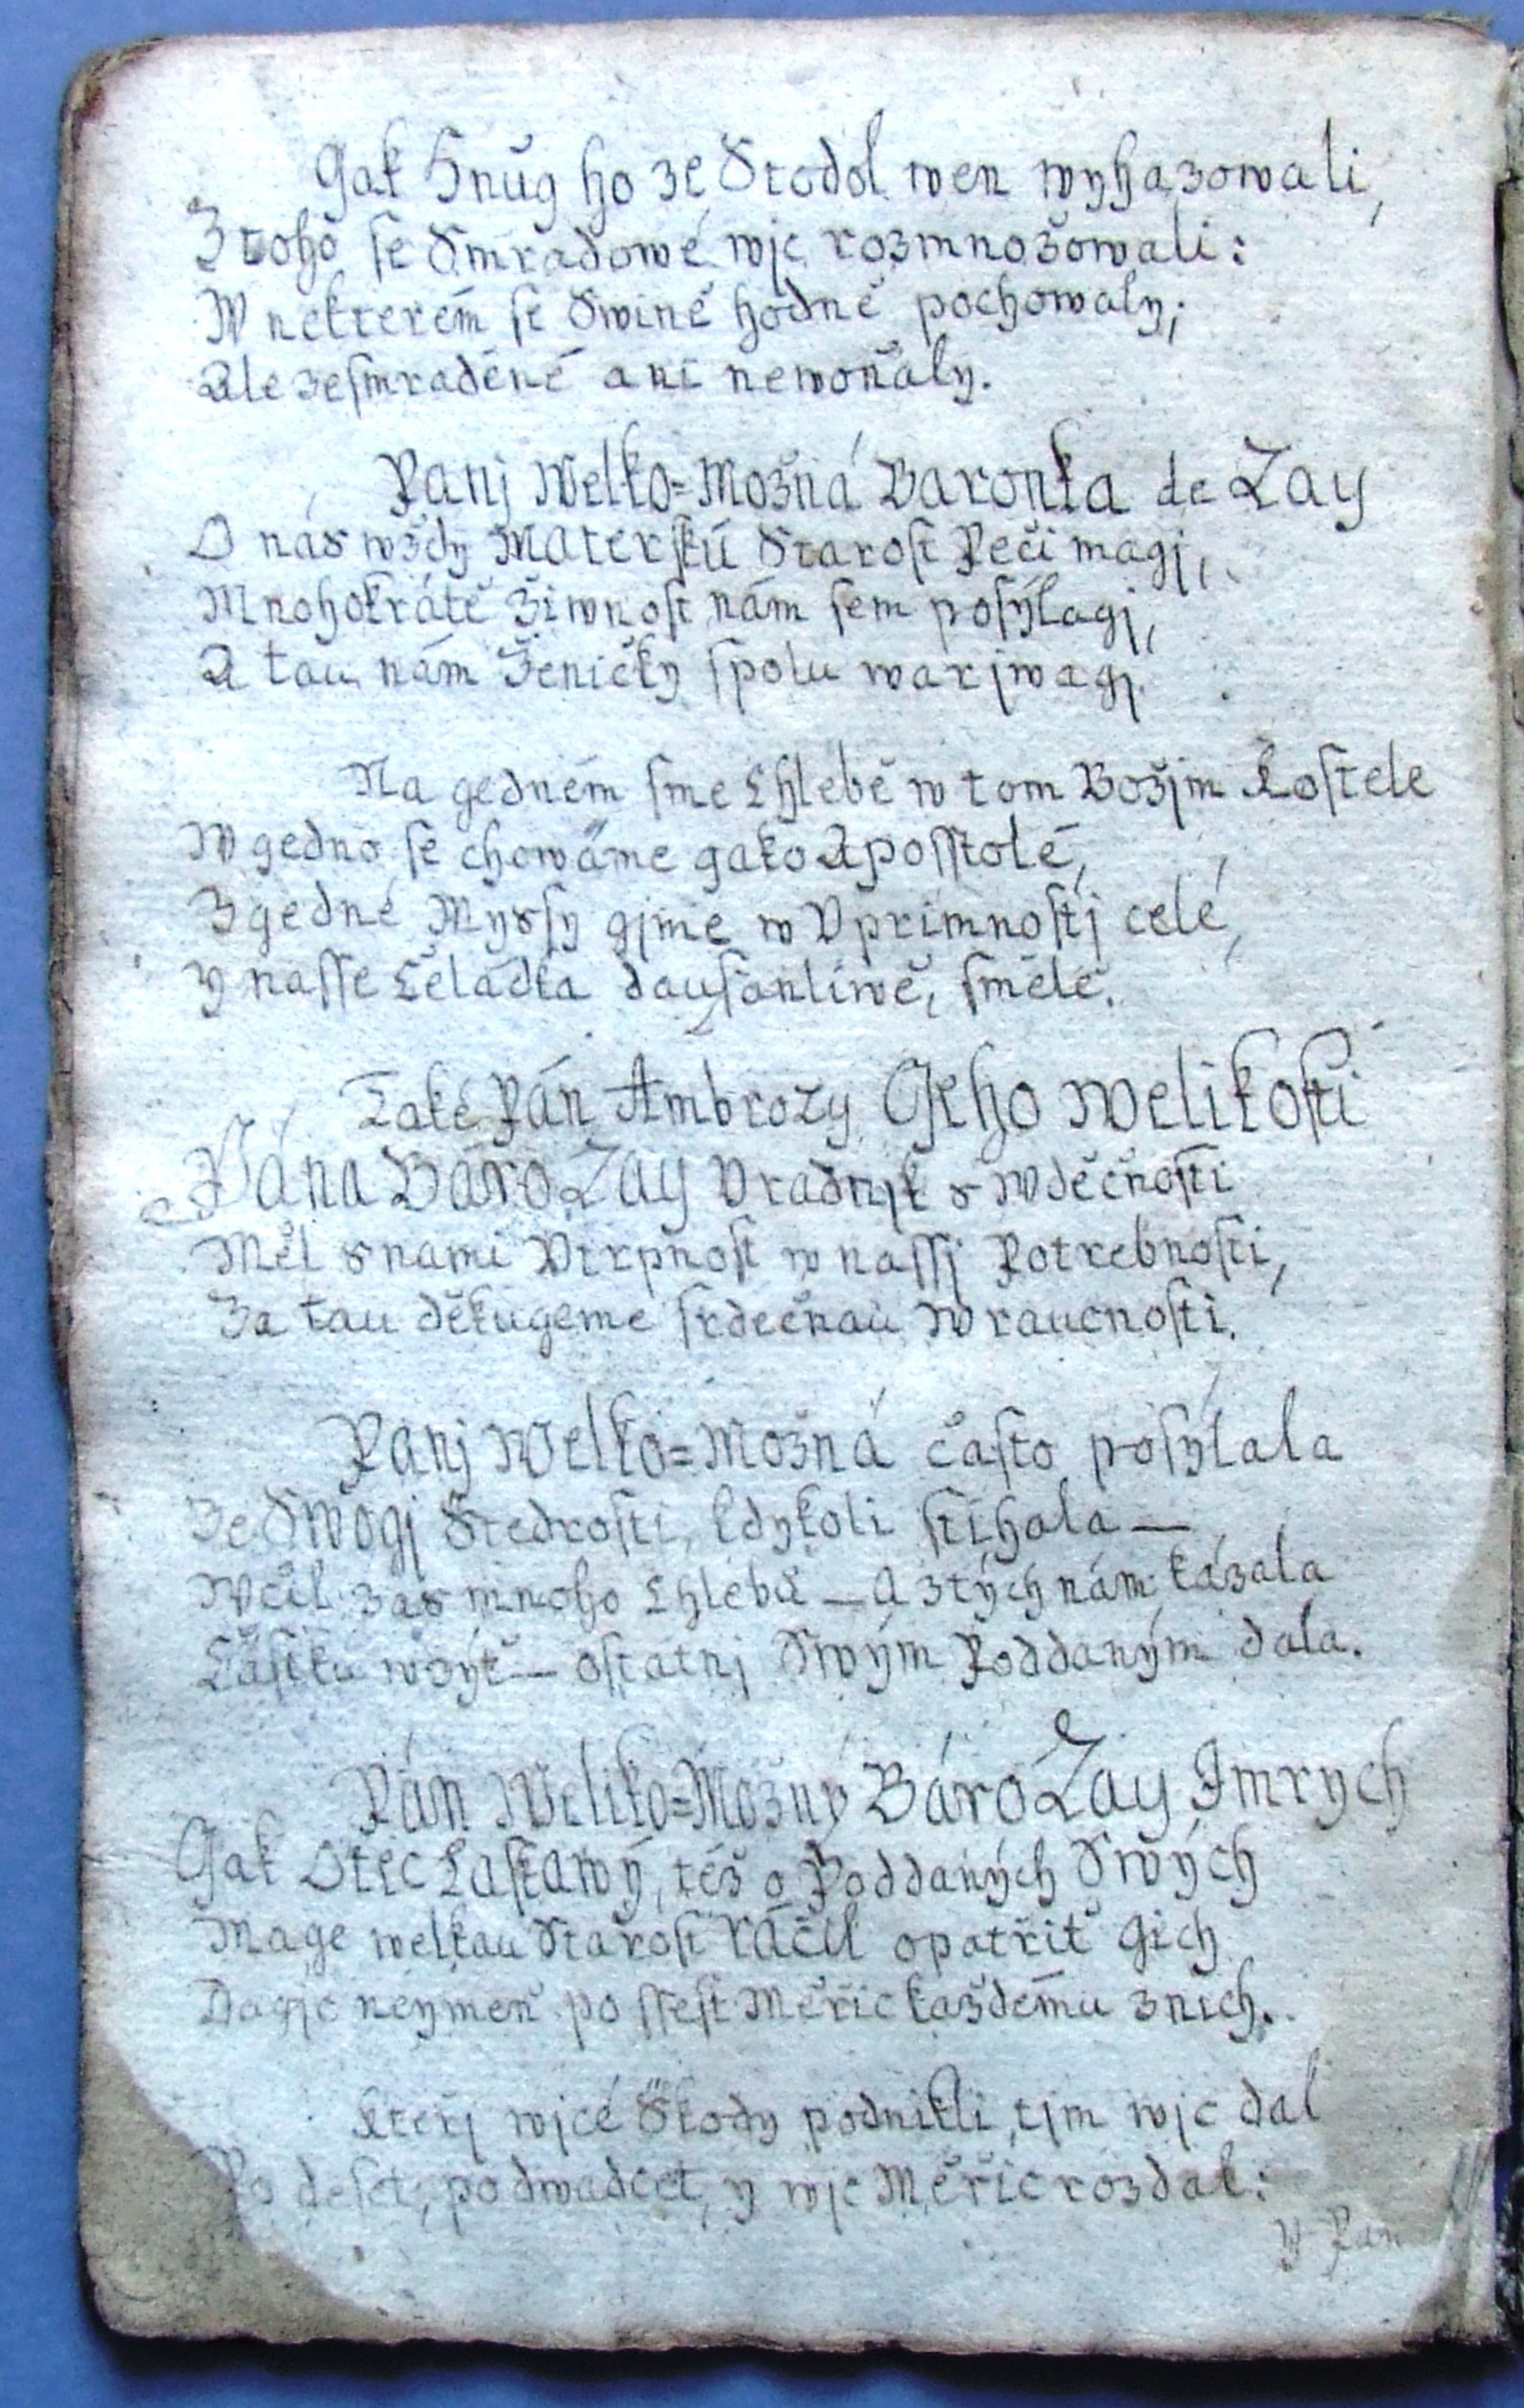 Gak Hnůg ho ze Stodol wen wyhazowali,
Z toho se Smradowé wjc rozmnožowali:
W nekterém se Swiné hodné pochowaly;
Ale zesmraděné ani newoňaly.
Panj Welko=Možná Baronka de Zay
O nás wždy Materskú Starost Peči magj,
Mnohokráte Žiwnost nám sem posýlagj,
A tau nám Ženičky spolu warjwagj.
Na gedném sme Chlebě w tom Božjm Kostele
W gedno se chowáme gako Aposstolé,
Z gedné Myssy gjme w Vprimnosti celé,
Y nasse Čeládka daufanliwě, směle.
Také Pán Ambrozy Geho Welikosti
Pána Báro Zay Vradnjk s Wděčnosti
Měl s nami Vtrpnost w nassj Potrebnosti,
Za tau děkugeme srdečnau Wraucnosti.
Panj Welko=Možná často posýlala
Ze Swogj Stedrosti, kdykoli stihala —
Wčil zas mnoho Chlebů — A z tých nám kázala
Částku wzýt — ostatnj Swým Poddaným dala.
Pán Weliko=Možný Báro Zay Imrych
Gak Otec Laskawý, též o Poddaných Swých
Mage welkau Starost ráčil opatřit Gich
Dagjc neymeň po ssest Měřic každému z nich.
Kterj wjcé Škody podnikli, tjm wjc dal
Po deset, po dwadcet, y wjc Měřic rozdal:
Y Pan